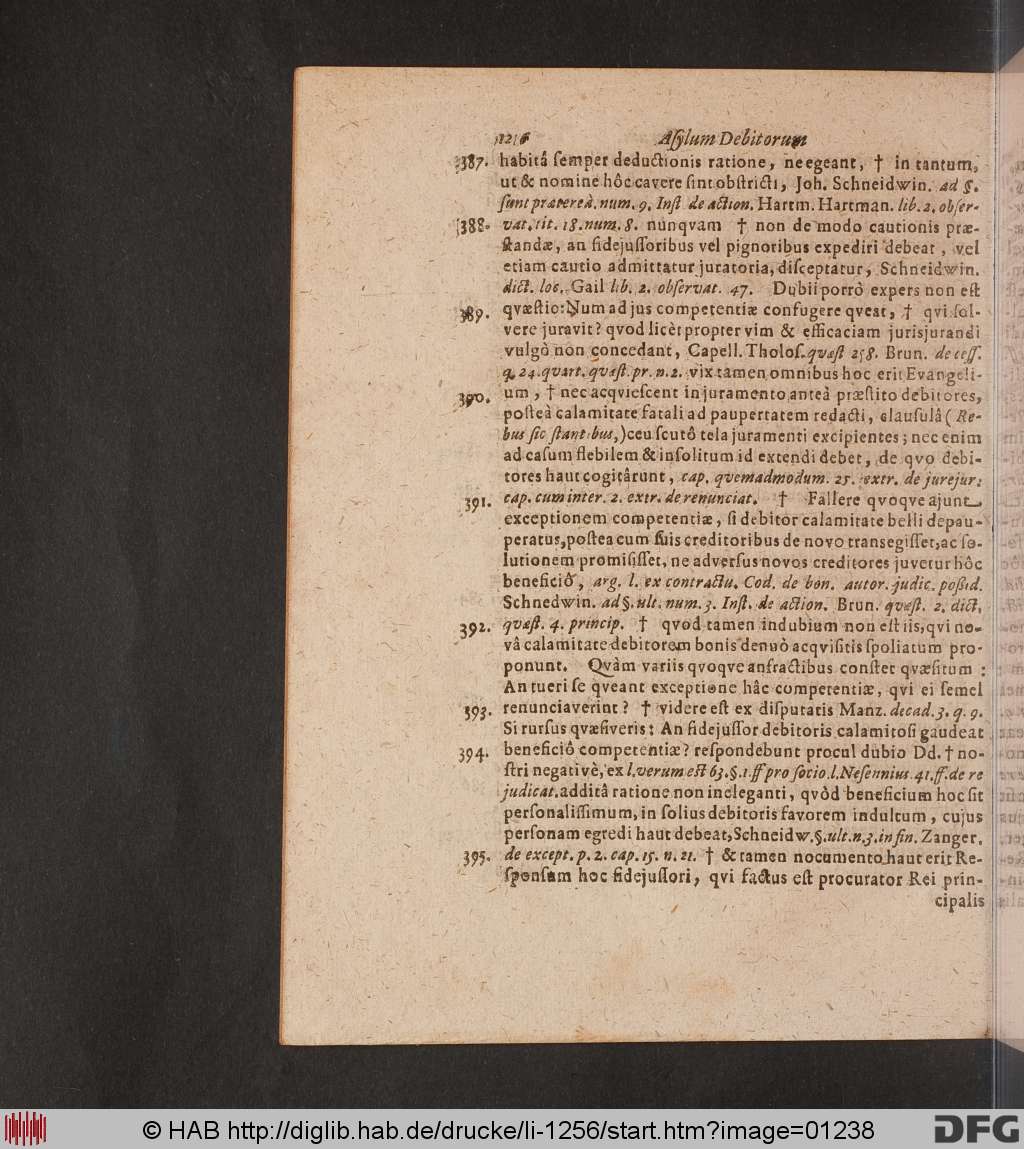 1216 Asylum Debitorum
387. habitâ semper deductionis ratione, ne egeant, † in tantum,
ut & nomine hôc cavere sint obstricti, Joh. Schneidwin. ad §.
sunt prætereà. num. 9. Inst. de action. Hartm. Hartman. lib. 2. obser-
388. vat. tit. 18. num. 8. nunqvam † non de modo cautionis præ-
standæ, an fidejussoribus vel pignoribus expediri debeat, vel
etiam cautio admittatur juratoria, disceptatur, Schneidwin.
dict. loc. Gail lib. 2. observat. 47. Dubii porrò expers non est
389. qvæstio: Num ad jus competentiæ confugere qveat, † qvi sol-
vere juravit? qvod licèt propter vim & efficaciam jurisjurandi
vulgò non concedant, Capell. Tholos. quæst 258. Brun. de cess.
q. 24. quart. quæst. pr. n. 2. vix tamen omnibus hoc erit Evangeli-
390. um, † nec acqviescent in juramento anteà præstito debitores,
posteà calamitate fatali ad paupertatem redacti, clausulâ (Re-
bus sic stantibus,) ceu scutô tela juramenti excipientes; nec enim
ad casum flebilem & insolitum id extendi debet, de qvo debi-
tores haut cogitârunt, cap. quemadmodum. 25. extr. de jurejur:
391. cap. cum inter. 2. extr. de renunciat. † Fallere qvoqve ajunt
exceptionem competentiæ, si debitor calamitate belli depau-
peratus, postea cum suis creditoribus de novo transegisset, ac so-
lutionem promisisset, ne adversus novos creditores juvetur hôc
beneficiô, arg. l. ex contractu. Cod. de bon. autor. judic. possid.
Schnedwin. ad §. ult. num. 3. Inst. de action. Brun. quæst. 2. dict,
392. quæst. 4. princip. † qvod tamen indubium non est iis, qvi no-
vâ calamitate debitorem bonis denuò acqvisitis spoliatum pro-
ponunt. Qvàm variis qvoqve anfractibus constet qvæsitum:
An tueri se qveant exceptione hâc competentiæ, qvi ei semel
393. renunciaverint? † videre est ex disputatis Manz. decad. 3. q. 9.
Si rursus qvæsiveris: An fidejussor debitoris calamitosi gaudeat
394. beneficiô competentiæ? respondebunt procul dubio Dd. † no-
stri negativè, ex l. verum est 63. §. 1. ff pro socio. l. Nesennius 41. ff. de re
judicat. additâ ratione non ineleganti, qvòd beneficium hoc sit
personalissimum, in solius debitoris favorem indultum, cujus
personam egredi haut debeat, Schneidw. §. ult. n. 3. in fin. Zanger.
395. de except. p. 2. cap. 15. n. 21. † & tamen nocumento haut erit Re-
sponsum hoc fidejussori, qvi factus est procurator Rei prin-
cipalis
© HAB http://diglib.hab.de/drucke/li-1256/start.htm?image=01238
DFG